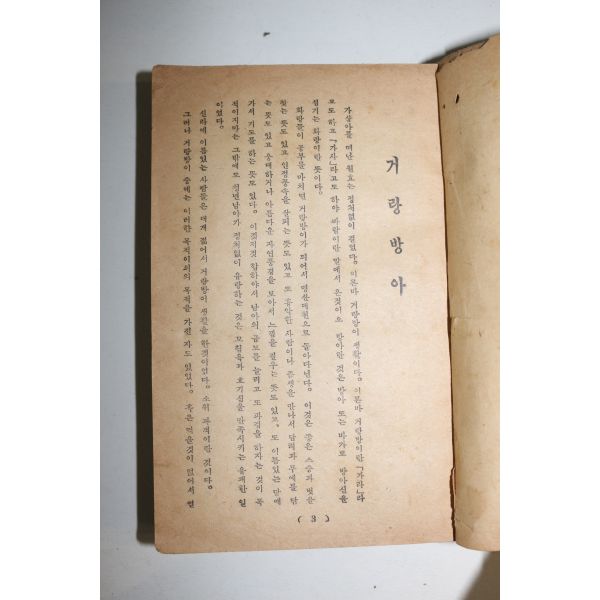 거랑방아
가상아를 떠난 원효는 정처없이 걸었다. 이른바 거랑방이 생활이다. 이른바 거랑방이란 「가라」라
고도 하고 「가사」라고도 하야 화랑이란 말에서 온것이오 방아란 것은 방아 또는 바가로 방아신을
섬기는 화랑이란 뜻이다.
화랑들이 공부를 마치면 거랑방이가 되어서 명산대천으로 돌아다닌다. 이것은 좋은 스승과 벗을
찾는 뜻도 있고 인정풍속을 살피는 뜻도 있고 또 흉악한 사람이나 즘생을 만나서 담력과 무예를 닦
는 뜻도 있고 웅대하거나 아름다운 자연풍경을 보아서 느낌을 길우는 뜻도 있고, 또 이름있는 산에
가서 기도를 하는 뜻도 있다. 이것저것 합하야서 남아의 금도를 늘리고 또 파겁을 하자는 것이 목
적이지마는 그밖에도 청년남아가 정처없이 유랑하는 것은 모험욕과 호기심을 만족시키는 유쾌한 일
이었다.
신라에 이름있는 사람들은 대개 젊어서 거랑방이 생활을 한것이었다. 소위 파격이란 것이다.
그러나 거랑방이 중에는 이러한 목적이외의 목적을 가진 자도 있었다. 혹은 먹을것이 없어서 얻
( 3 )